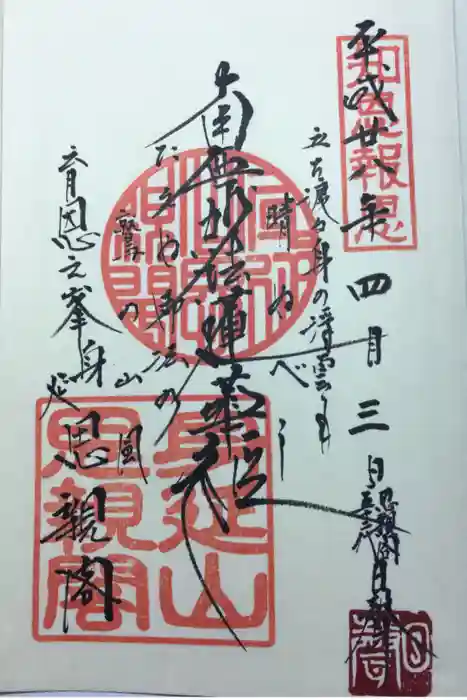 平成廿八年四月三日
知恩報恩
立わたる身の浮雲も
晴ぬべし
南無妙法蓮華経
たえぬ御法の
鷲の山風
育恩之峯身延
思親閣
身延山
思親閣
思親閣